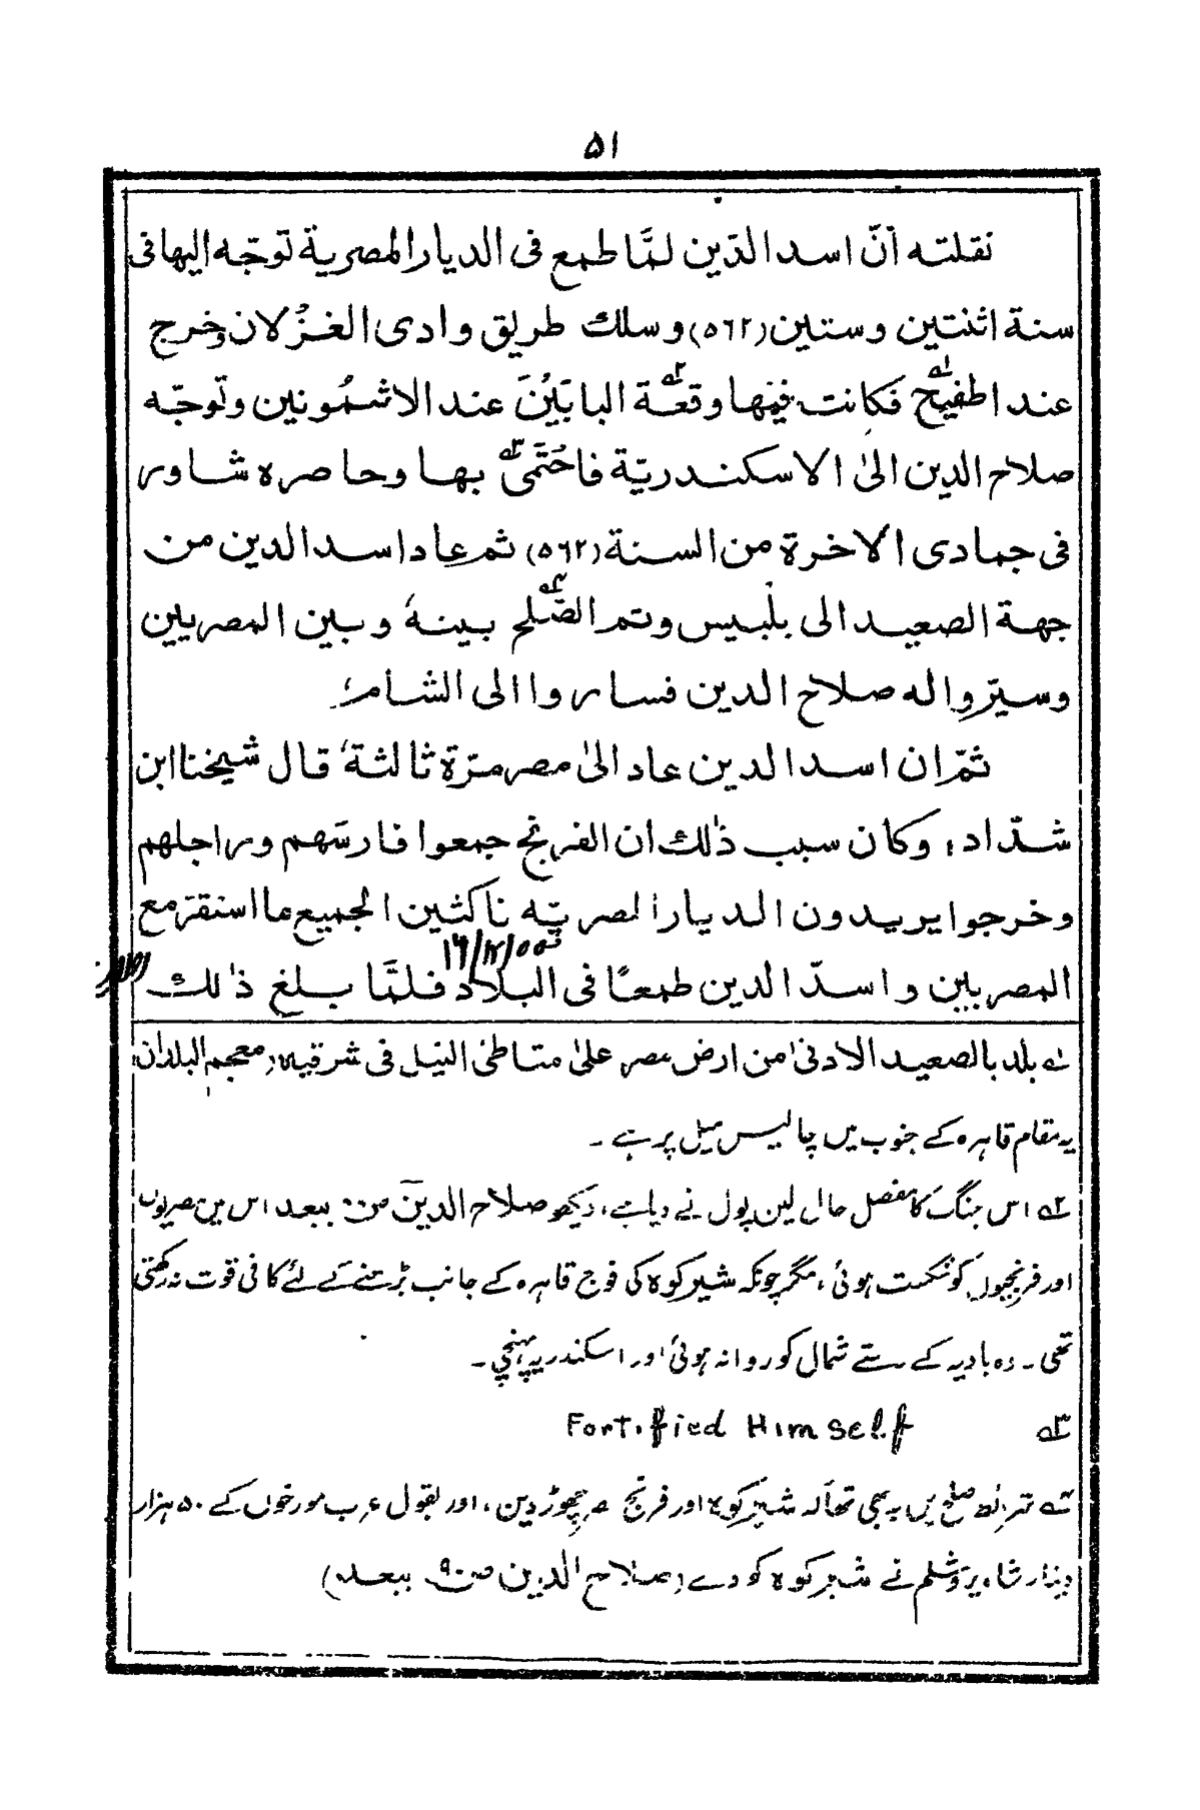 ۵۱
نقلته أنّ اسد الدّين لمَّا طمع فى الديار المصرية توجّه اليها فى
سنة اثنتين وستين (۵٦۲) وسلك طريق وادى الغزْلان وخرج
عند اطفيح لـه فكانت فيها وقعة ۲ـه البابَيْنَ عند الاشمُونين وتوجّه
صلاح الدين الىٰ الاسكندريّة فاحْتَمىٰ ۳ـه بها وحاصره شاور
فى جمادى الاخرة من السنة (۵٦۲) ثم عاد اسد الدين من
جهة الصعيد الى بلْبيس وتم الصّلح ۴ـه بينهٗ وبين المصريين
وسيّروا له صلاح الدين فساروا الى الشام؛
ثمّ ان اسد الدين عاد الىٰ مصر مرّة ثالثة، قال شيخنا ابن
شدّاد: وكان سبب ذٰلك ان الفرنج جمعوا فارسَهم وراجلهم
وخرجوا يريدون الديار المصريّه ناكثين الجميع ما استقرّ مع
المصريين و اسدّ الدين طمعًا فى البلاد فلمَّا بلغ ذٰلك
لـه بلد بالصعيد الادنىٰ من ارض مصر علىٰ شاطئ النيل فى شرقيه (معجم البلدان
یہ مقام قاہرہ کے جنوب میں چالیس میل پر ہے۔
۲ـه اس جنگ کا مفصل حال لین پول نے دیا ہے، دیکھو صلاح الدین ببعد اس میں مصریوں
اور فرنجیوں کو شکست ہوئی، مگر چونکہ شیرکوہ کی فوج قاہرہ کے جانب بڑھنے کے لئے کافی قوت نہ رکھتی
تھی۔ وہ بادیہ کے رستے شمال کو روانہ ہوئی اور اسکندریہ پہنچی۔
۳ـه Fortified Himself
۴ـه شرائط صلح میں یہ بھی تھا کہ شیرکوہ اور فرنج مصر چھوڑ دیں، اور بقول عرب مورخوں کے ۵۰ ہزار
دینار شاہ یروشلم نے شیرکوہ کو دے (صلاح الدین ببعد)